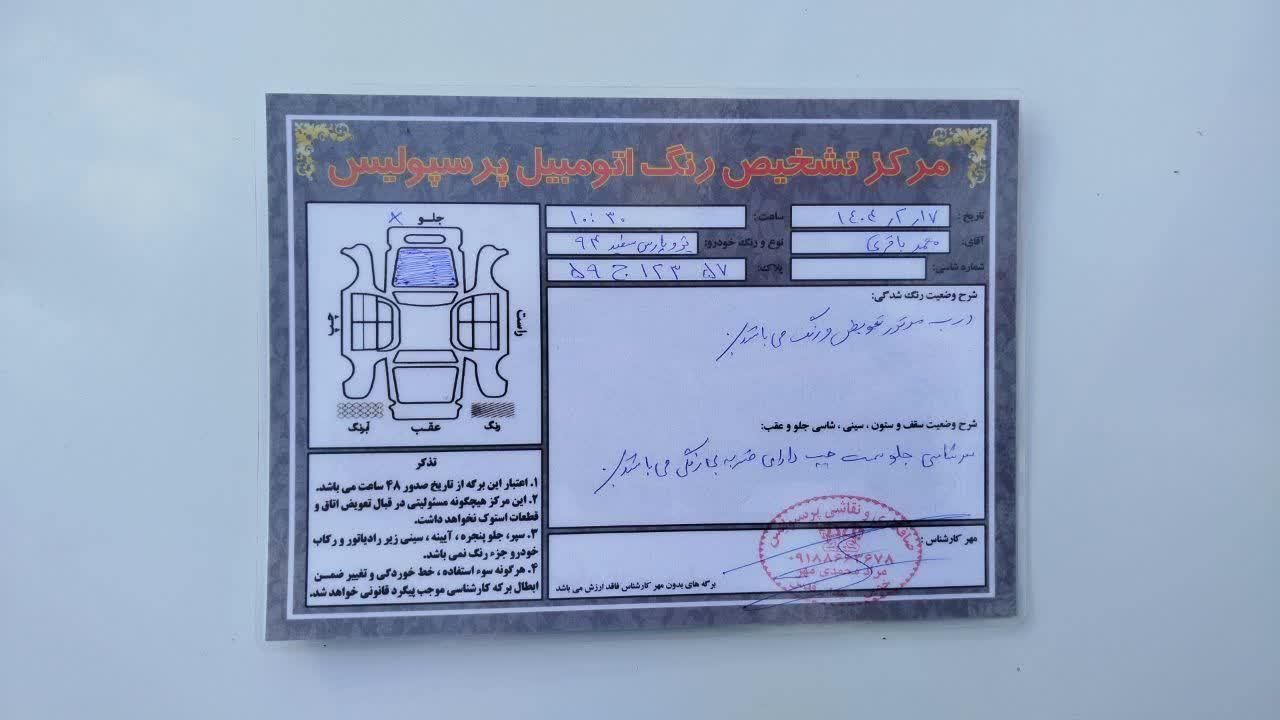 مرکز تشخیص رنگ اتومبیل پرسپولیس
تاریخ: ۱۴۰۴٫۲٫۱۷
ساعت: ۱۰:۳۰
آقای: محمد باقری
نوع و رنگ خودرو: پژو پارس سفید ۹۴
شماره شاسی:
پلاک: ۵۹ ج ۱۲۳ ۵۷
جلو
راست
چپ
رنگ
عقب
آبرنگ
شرح وضعیت رنگ شدگی:
درب موتور تعویض و رنگ می باشد.
شرح وضعیت سقف و ستون ، سینی ، شاسی جلو و عقب:
سر شاسی جلو سمت چپ دارای ضربه می باشد.
تذکر
۱. اعتبار این برگه از تاریخ صدور ۴۸ ساعت می باشد.
۲. این مرکز هیچگونه مسئولیتی در قبال تعویض اتاق و
قطعات استوک نخواهد داشت.
۳. سپر، جلو پنجره ، آیینه ، سینی زیر رادیاتور و رکاب
خودرو جزء رنگ نمی باشد.
۴. هرگونه سوء استفاده ، خط خوردگی و تغییر ضمن
ابطال برگه کارشناسی موجب پیگرد قانونی خواهد شد.
مهر کارشناس :
صافکاری و نقاشی پرسپولیس
۰۹۱۸۸۶۶۳۶۷۸
مراد محمدی مهر
برگه های بدون مهر کارشناس فاقد ارزش می باشد